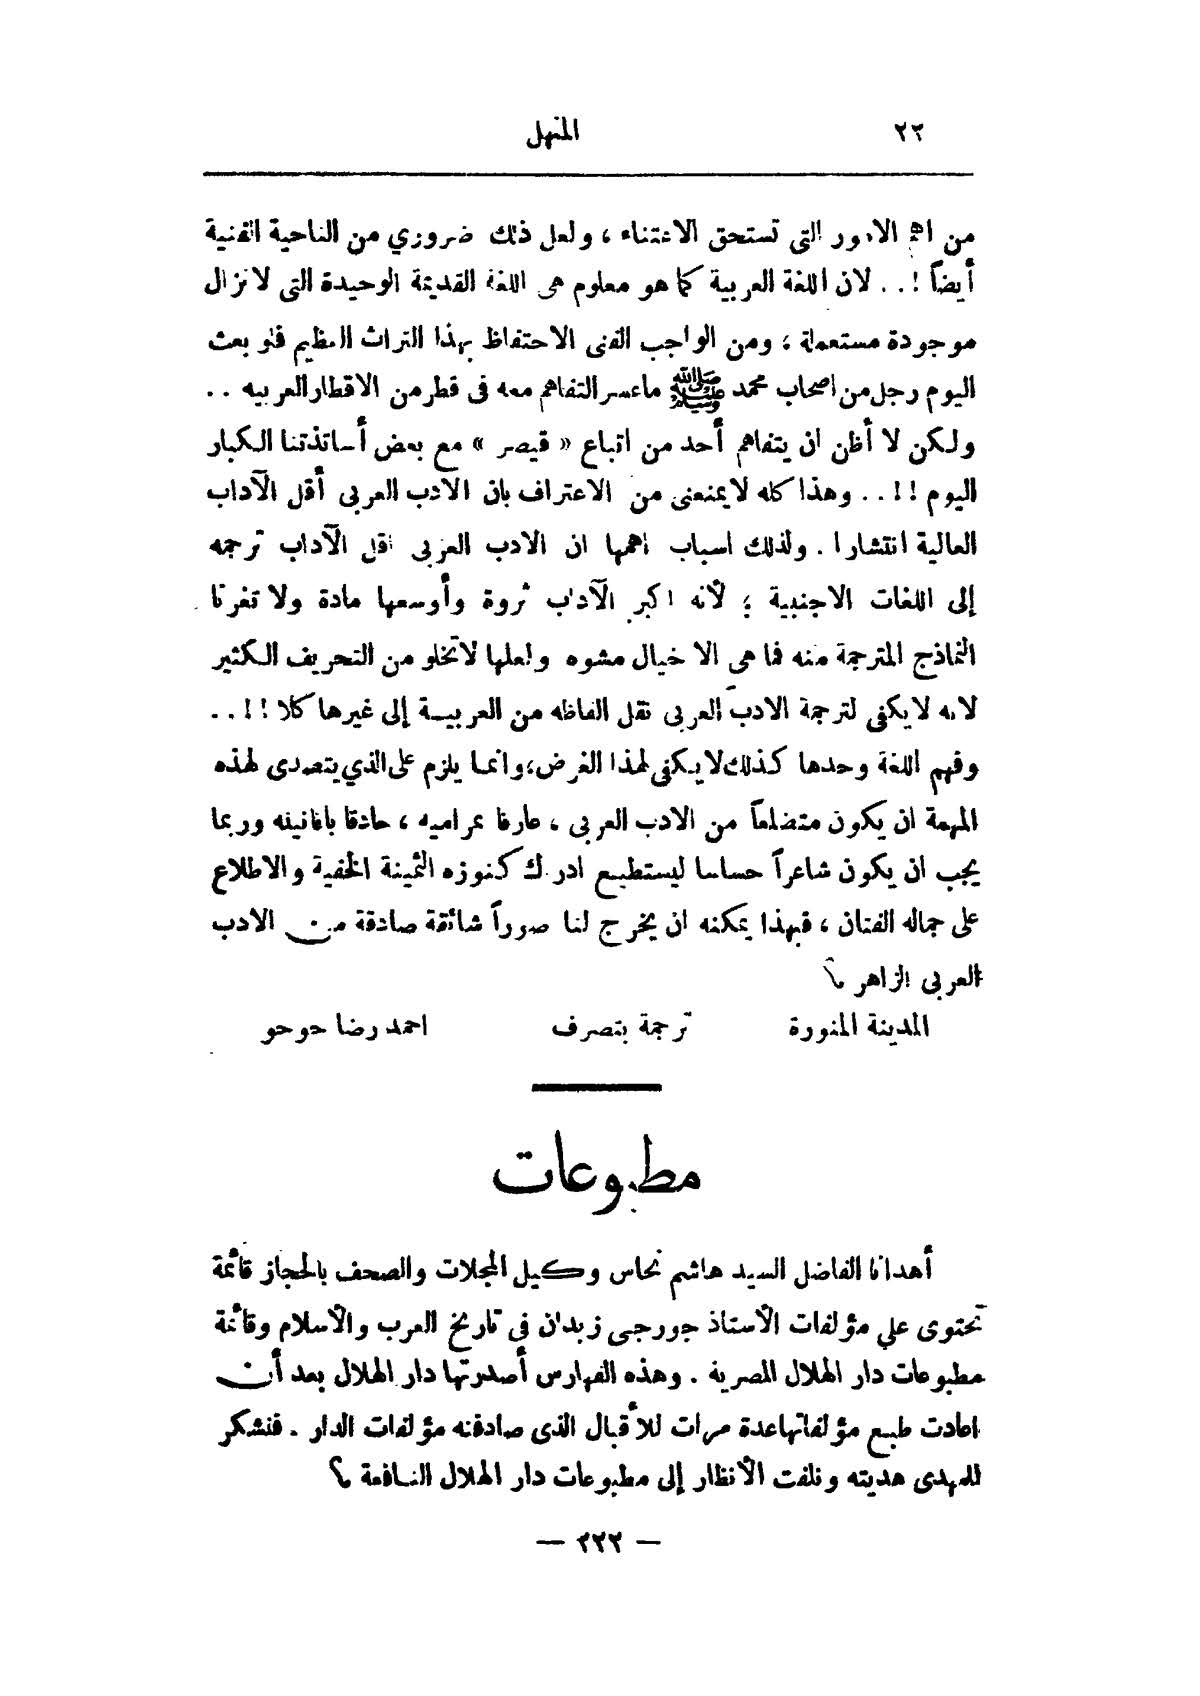 ٢٢ المنهل
من اهم الامور التي تستحق الاعتناء ، ولعل ذلك ضروري من الناحية الفنية
أيضاً ! . . لان اللغة العربية كما هو معلوم هى اللغة القديمة الوحيدة التى لا نزال
موجودة مستعملة ؛ ومن الواجب الفنى الاحتفاظ بهذا التراث العظيم فلو بعث
اليوم رجل من اصحاب محمد ﷺ ماعسر التفاهم معه فى قطر من الاقطار العربيه . .
ولكن لا أظن ان يتفاهم أحد من اتباع « قيصر » مع بعض أساتذتنا الكبار
اليوم ! ! . . وهذا كله لا يمنعنى من الاعتراف بان الادب العربى أقل الآداب
العالية انتشارا . ولذلك اسباب اهمها ان الادب العربى اقل الآداب ترجمه
إلى اللغات الاجنبية ؛ لأنه اكبر الآداب ثروة وأوسعها مادة ولا تغرنا
النماذج المترجمة منه فما هى الا خيال مشوه ولعلها لا تخلو من التحريف الكثير
لانه لا يكفى لترجمة الادب العربى نقل الفاظه من العربية إلى غيرها كلا ! ! . .
وفهم اللغة وحدها كذلك لا يكفى لهذا الغرض، وانما يلزم على الذي يتصدى لهذه
المهمة ان يكون متضلعاً من الادب العربى ، عارفا بمراميه ، حاذقا بافانينه وربما
يجب ان يكون شاعراً حساسا ليستطيع ادراك كنوزه الثمينة الخفية والاطلاع
على جماله الفتان ، فبهذا يمكنه ان يخرج لنا صوراً شائقة صادقة من الادب
العربى الزاهر
المدينة المنورة ترجمة بتصرف احمد رضا حوحو
مطبوعات
أهدانا الفاضل السيد هاشم نحاس وكيل المجلات والصحف بالحجاز قائمة
تحتوى علي مؤلفات الأستاذ جورجى زيدان فى تاريخ العرب والأسلام وقائمة
مطبوعات دار الهلال المصرية . وهذه الفهارس أصدرتها دار الهلال بعد أن
اعادت طبع مؤلفاتها عدة مرات للأقبال الذى صادفته مؤلفات الدار . فنشكر
للمهدى هديته ونلفت الأنظار إلى مطبوعات دار الهلال النافعة
— ٢٢٢ —